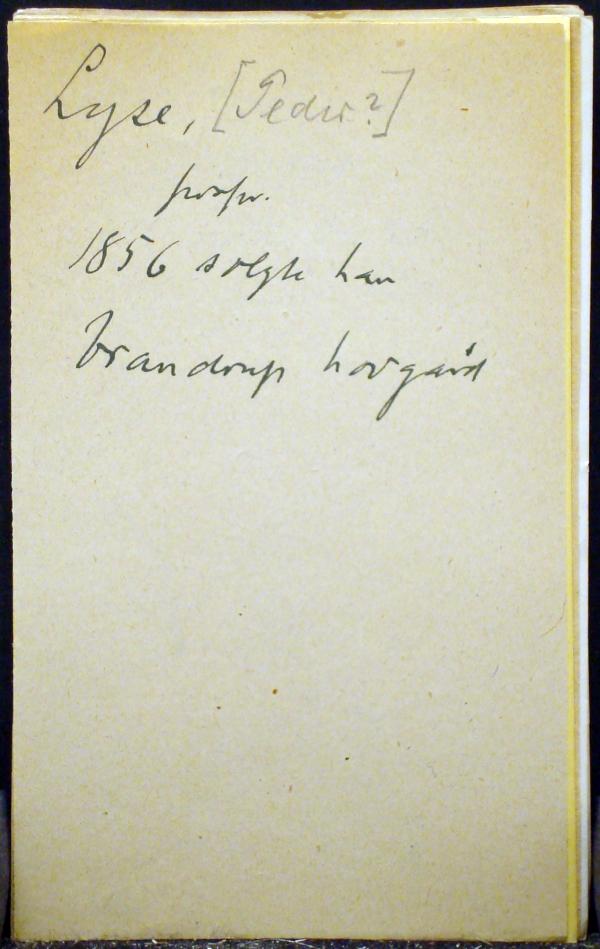 Lyse, [Peder?]
propr.
1856 solgte han
Brandrup hovgård